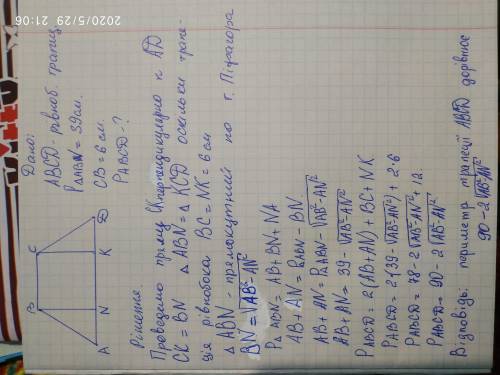 2020/5/29 21:06
Дано:
ABCD - рівноб. трапец.
P△ABN = 39 см.
CB = 6 см.
PABCD - ?
B C
A N K D
Рішення
Проведемо пряму CK перпендикулярно к AD
CK = BN △ABN = △KCD оскільки трапе-
ція рівнобока BC = NK = 6 см
△ABN - прямокутний по т. Піфагора
BN = √AB²-AN²
P△ABN = AB + BN + NA
AB + AN = PABN - BN
AB + AN = PABN - √AB²-AN²
AB + AN = 39 - √AB²-AN²
PABCD = 2(AB + AN) + BC + NK
PABCD = 2(39 - √AB²-AN²) + 2·6
PABCD = 78 - 2√AB²-AN² + 12.
PABCD = 90 - 2√AB²-AN²
Відповідь: периметр трапеції ABCD дорівнює
90 - 2√AB²-AN²